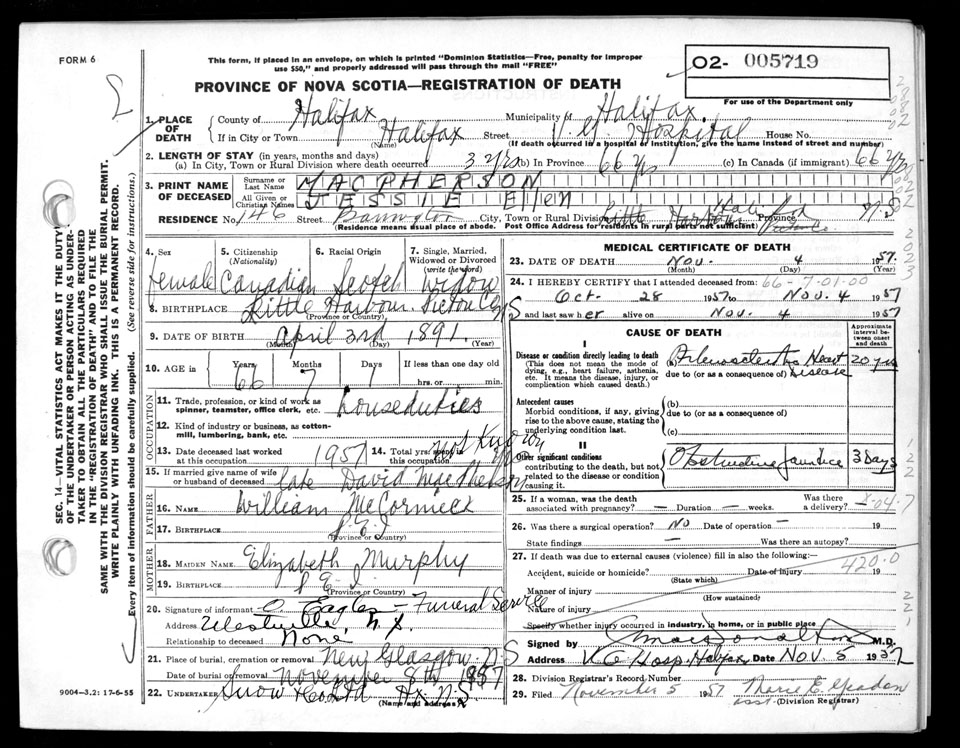 FORM 6
This form, if placed in an envelope, on which is printed "Dominion Statistics—Free, penalty for improper
use $50," and properly addressed will pass through the mail "FREE"
O2- 005719
PROVINCE OF NOVA SCOTIA—REGISTRATION OF DEATH
For use of the Department only
1. PLACE OF DEATH County of Halifax Municipality of Halifax
If in City or Town Halifax Street V. G. Hospital House No.
(Name) (If death occurred in a hospital or institution, give the name instead of street and number)
2. LENGTH OF STAY (in years, months and days)
(a) In City, Town or Rural Division where death occurred 3 yrs (b) In Province 66 yrs (c) In Canada (if immigrant) 66 yrs
3. PRINT NAME OF DECEASED Surname or Last Name MACPHERSON
All Given or Christian Names JESSIE Ellen
RESIDENCE No. 146 Street Barrington City, Town or Rural Division Little Harbour Halifax Province N.S
(Residence means usual place of abode. Post Office Address for residents in rural parts not sufficient)
4. Sex Female
5. Citizenship (Nationality) Canadian
6. Racial Origin Scotch
7. Single, Married, Widowed or Divorced (write the word) Widow
8. BIRTHPLACE Little Harbour. Pictou Co NS
(Province or Country)
9. DATE OF BIRTH April 3rd 1891
(Month) (Day) (Year)
10. AGE in Years 66 Months 7 Days 1 If less than one day old
hrs. or min.
OCCUPATION
11. Trade, profession, or kind of work as
spinner, teamster, office clerk, etc. houseduties
12. Kind of industry or business, as cotton-
mill, lumbering, bank, etc.
13. Date deceased last worked at this occupation 1957
14. Total yrs. spent in this occupation not known
15. If married give name of wife
or husband of deceased late David MacPherson
FATHER
16. NAME William McCormick
17. BIRTHPLACE P.E.I
(Province or Country)
MOTHER
18. MAIDEN NAME Elizabeth Murphy
19. BIRTHPLACE P.E.I
(Province or Country)
20. Signature of informant C. Eagles - Funeral Service
Address Westville, N.S.
Relationship to deceased None
21. Place of burial, cremation or removal New Glasgow N.S
Date of burial or removal November 8th 1957
22. UNDERTAKER Snow Co Ltd Hx N.S.
(Name and address)
9004-3.2: 17-6-55
SEC. 14—VITAL STATISTICS ACT MAKES IT THE DUTY
OF THE UNDERTAKER OR PERSON ACTING AS UNDER-
TAKER TO OBTAIN ALL THE PARTICULARS REQUIRED
IN THE "REGISTRATION OF DEATH" AND TO FILE THE
SAME WITH THE DIVISION REGISTRAR WHO SHALL ISSUE THE BURIAL PERMIT.
WRITE PLAINLY WITH UNFADING INK. THIS IS A PERMANENT RECORD.
Every item of information should be carefully supplied. (See reverse side for instructions.)
MEDICAL CERTIFICATE OF DEATH
23. DATE OF DEATH Nov. 4 1957.
(Month) (Day) (Year)
24. I HEREBY CERTIFY that I attended deceased from: 66-7-01-00
Oct- 28 1957 to Nov. 4 1957
and last saw her alive on Nov. 4 1957
CAUSE OF DEATH
Approximate interval between onset and death
I
Disease or condition directly leading to death
(This does not mean the mode of
dying, e.g., heart failure, asthenia,
etc. It means the disease, injury, or
complication which caused death.)
(a) Arteriosclerotic Heart Disease 20 yrs
due to (or as a consequence of)
Antecedent causes
Morbid conditions, if any, giving
rise to the above cause, stating the
underlying condition last.
(b)
due to (or as a consequence of)
(c)
II
Other significant conditions
contributing to the death, but not
related to the disease or condition
causing it.
Obstructive jaundice 3 Days
25. If a woman, was the death
associated with pregnancy? — Duration — weeks. Was there a delivery? —
26. Was there a surgical operation? No Date of operation — 19
State findings — Was there an autopsy?
27. If death was due to external causes (violence) fill in also the following:—
420.0
Accident, suicide or homicide? Date of injury 19
(State which)
Manner of injury
(How sustained)
Nature of injury
Specify whether injury occurred in industry, in home, or in public place
Signed by M.D.
Address V.G Hosp. Halifax Date Nov. 5 1957
28. Division Registrar's Record Number
29. Filed November 5 1957 Marie E.
asst. (Division Registrar)